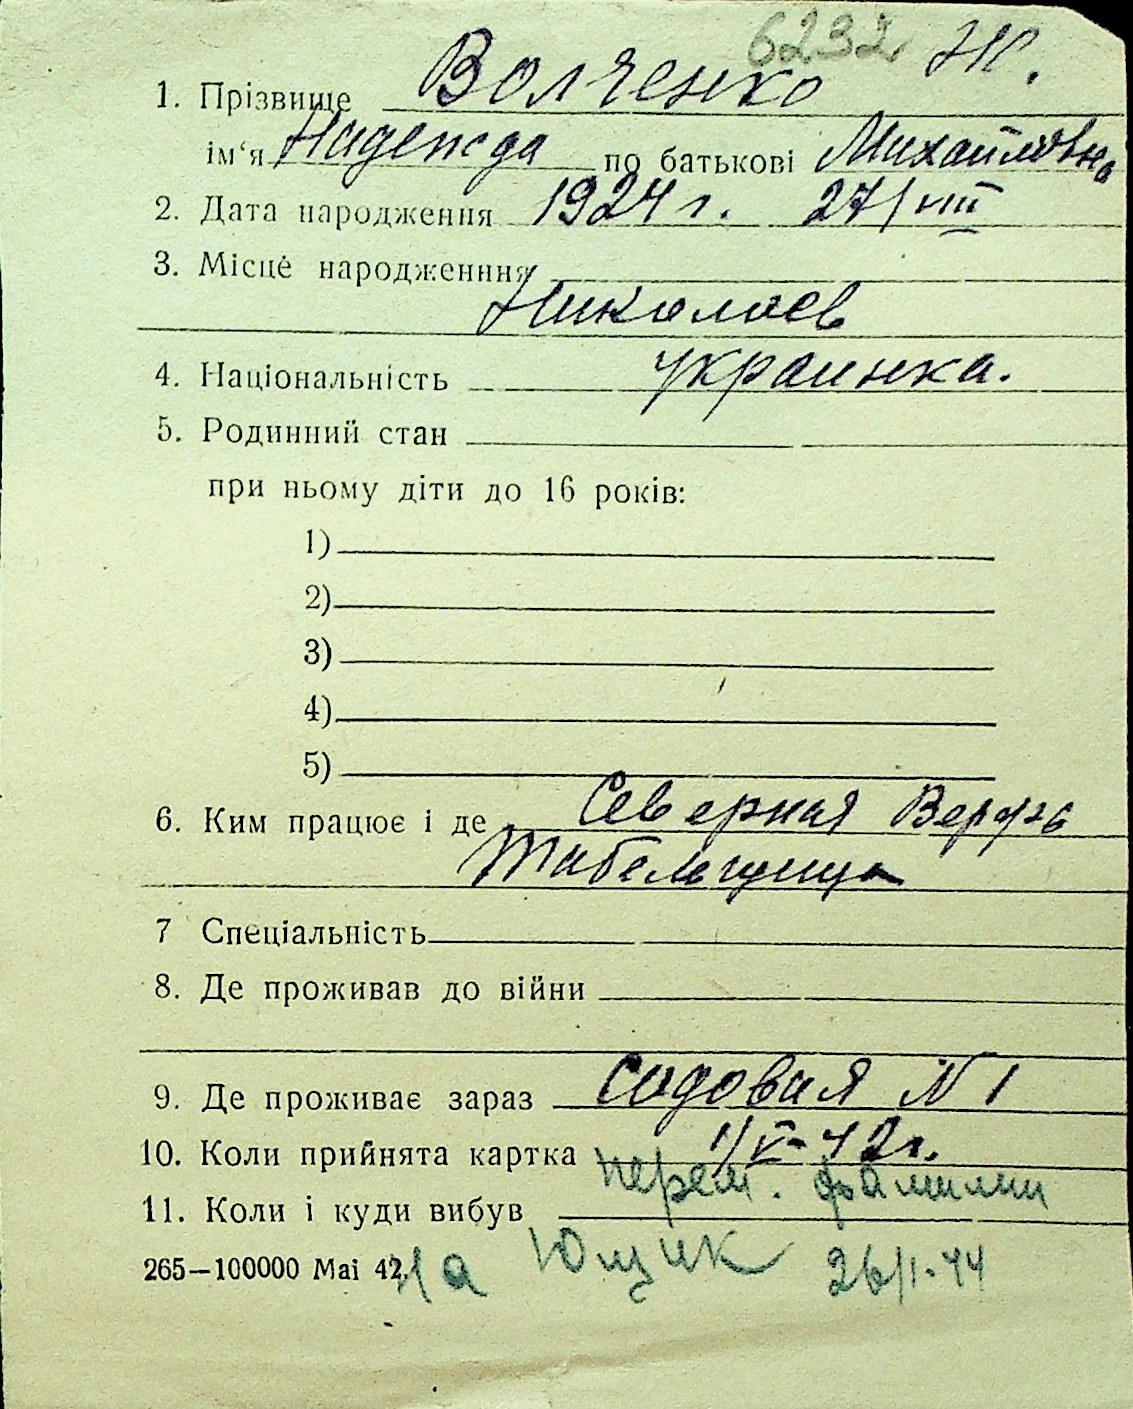 6232 Ж.
1. Прізвище Волченко
ім‘я Надежда по батькові Михайловна
2. Дата народження 1924 г. 27/VIII
3. Місце народженння
Николаев
4. Національність украинка.
5. Родинний стан
при ньому діти до 16 років:
1)
2)
3)
4)
5)
6. Ким працює і де Северная Верфь
Табельщица
7 Спеціальність
8. Де проживав до війни
9. Де проживає зараз Садовая N 1
10. Коли прийнята картка 1/V-42г.
перем. фамилии
11. Коли і куди вибув
265—100000 Mai 42. на Ющик 26/I-44